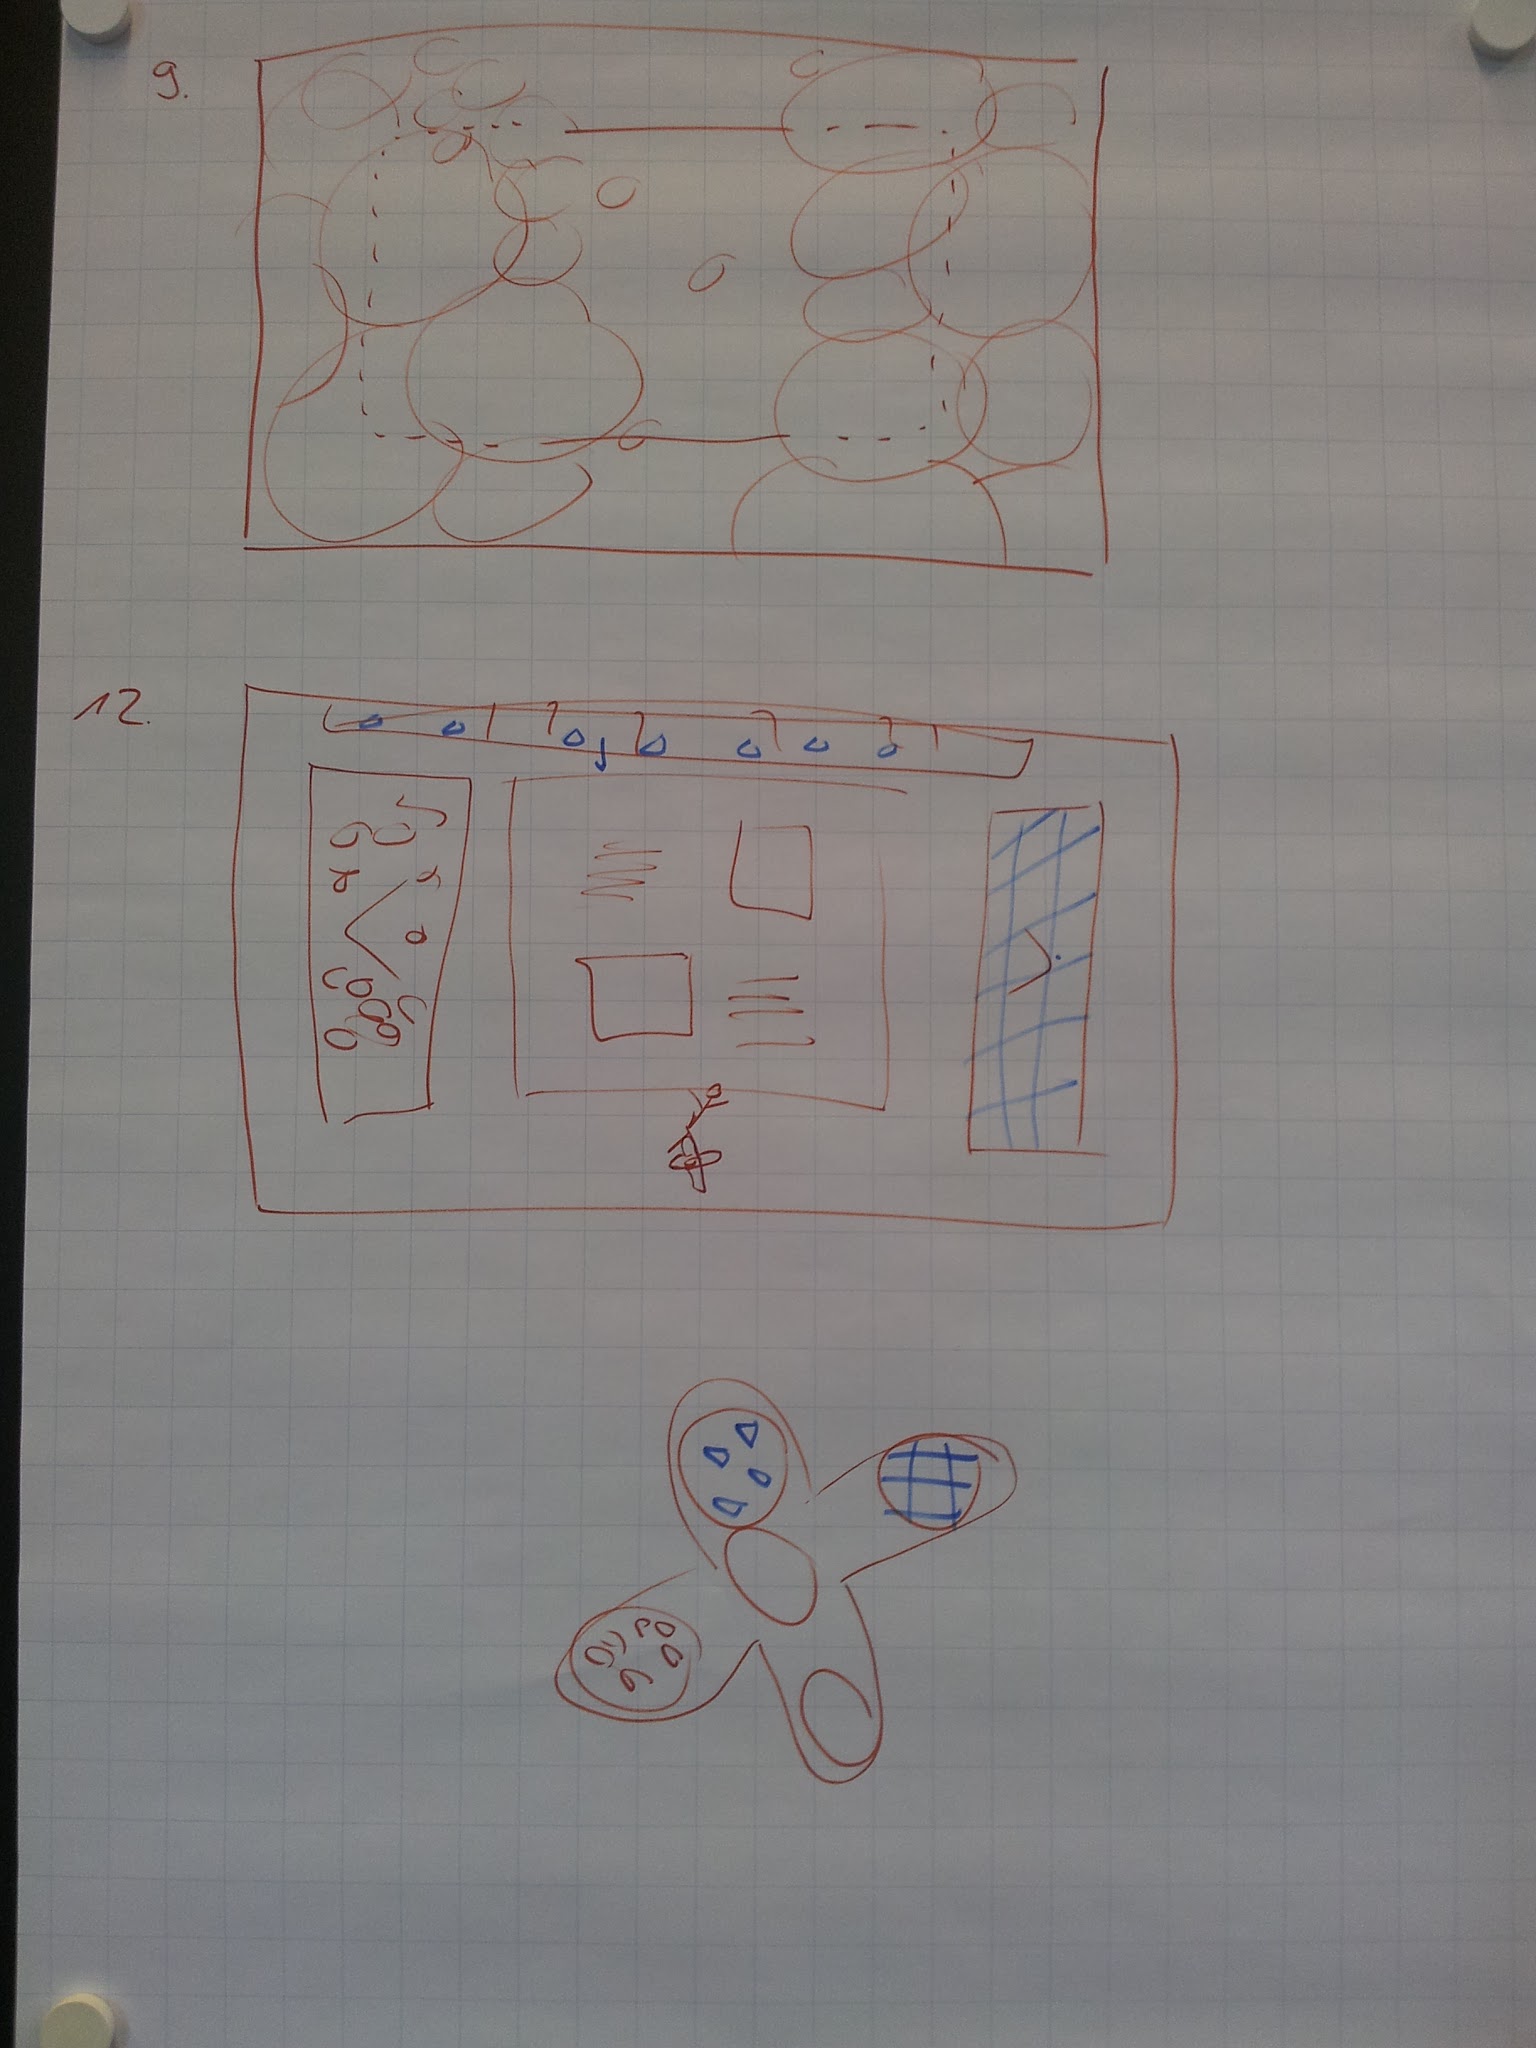 9.
12.